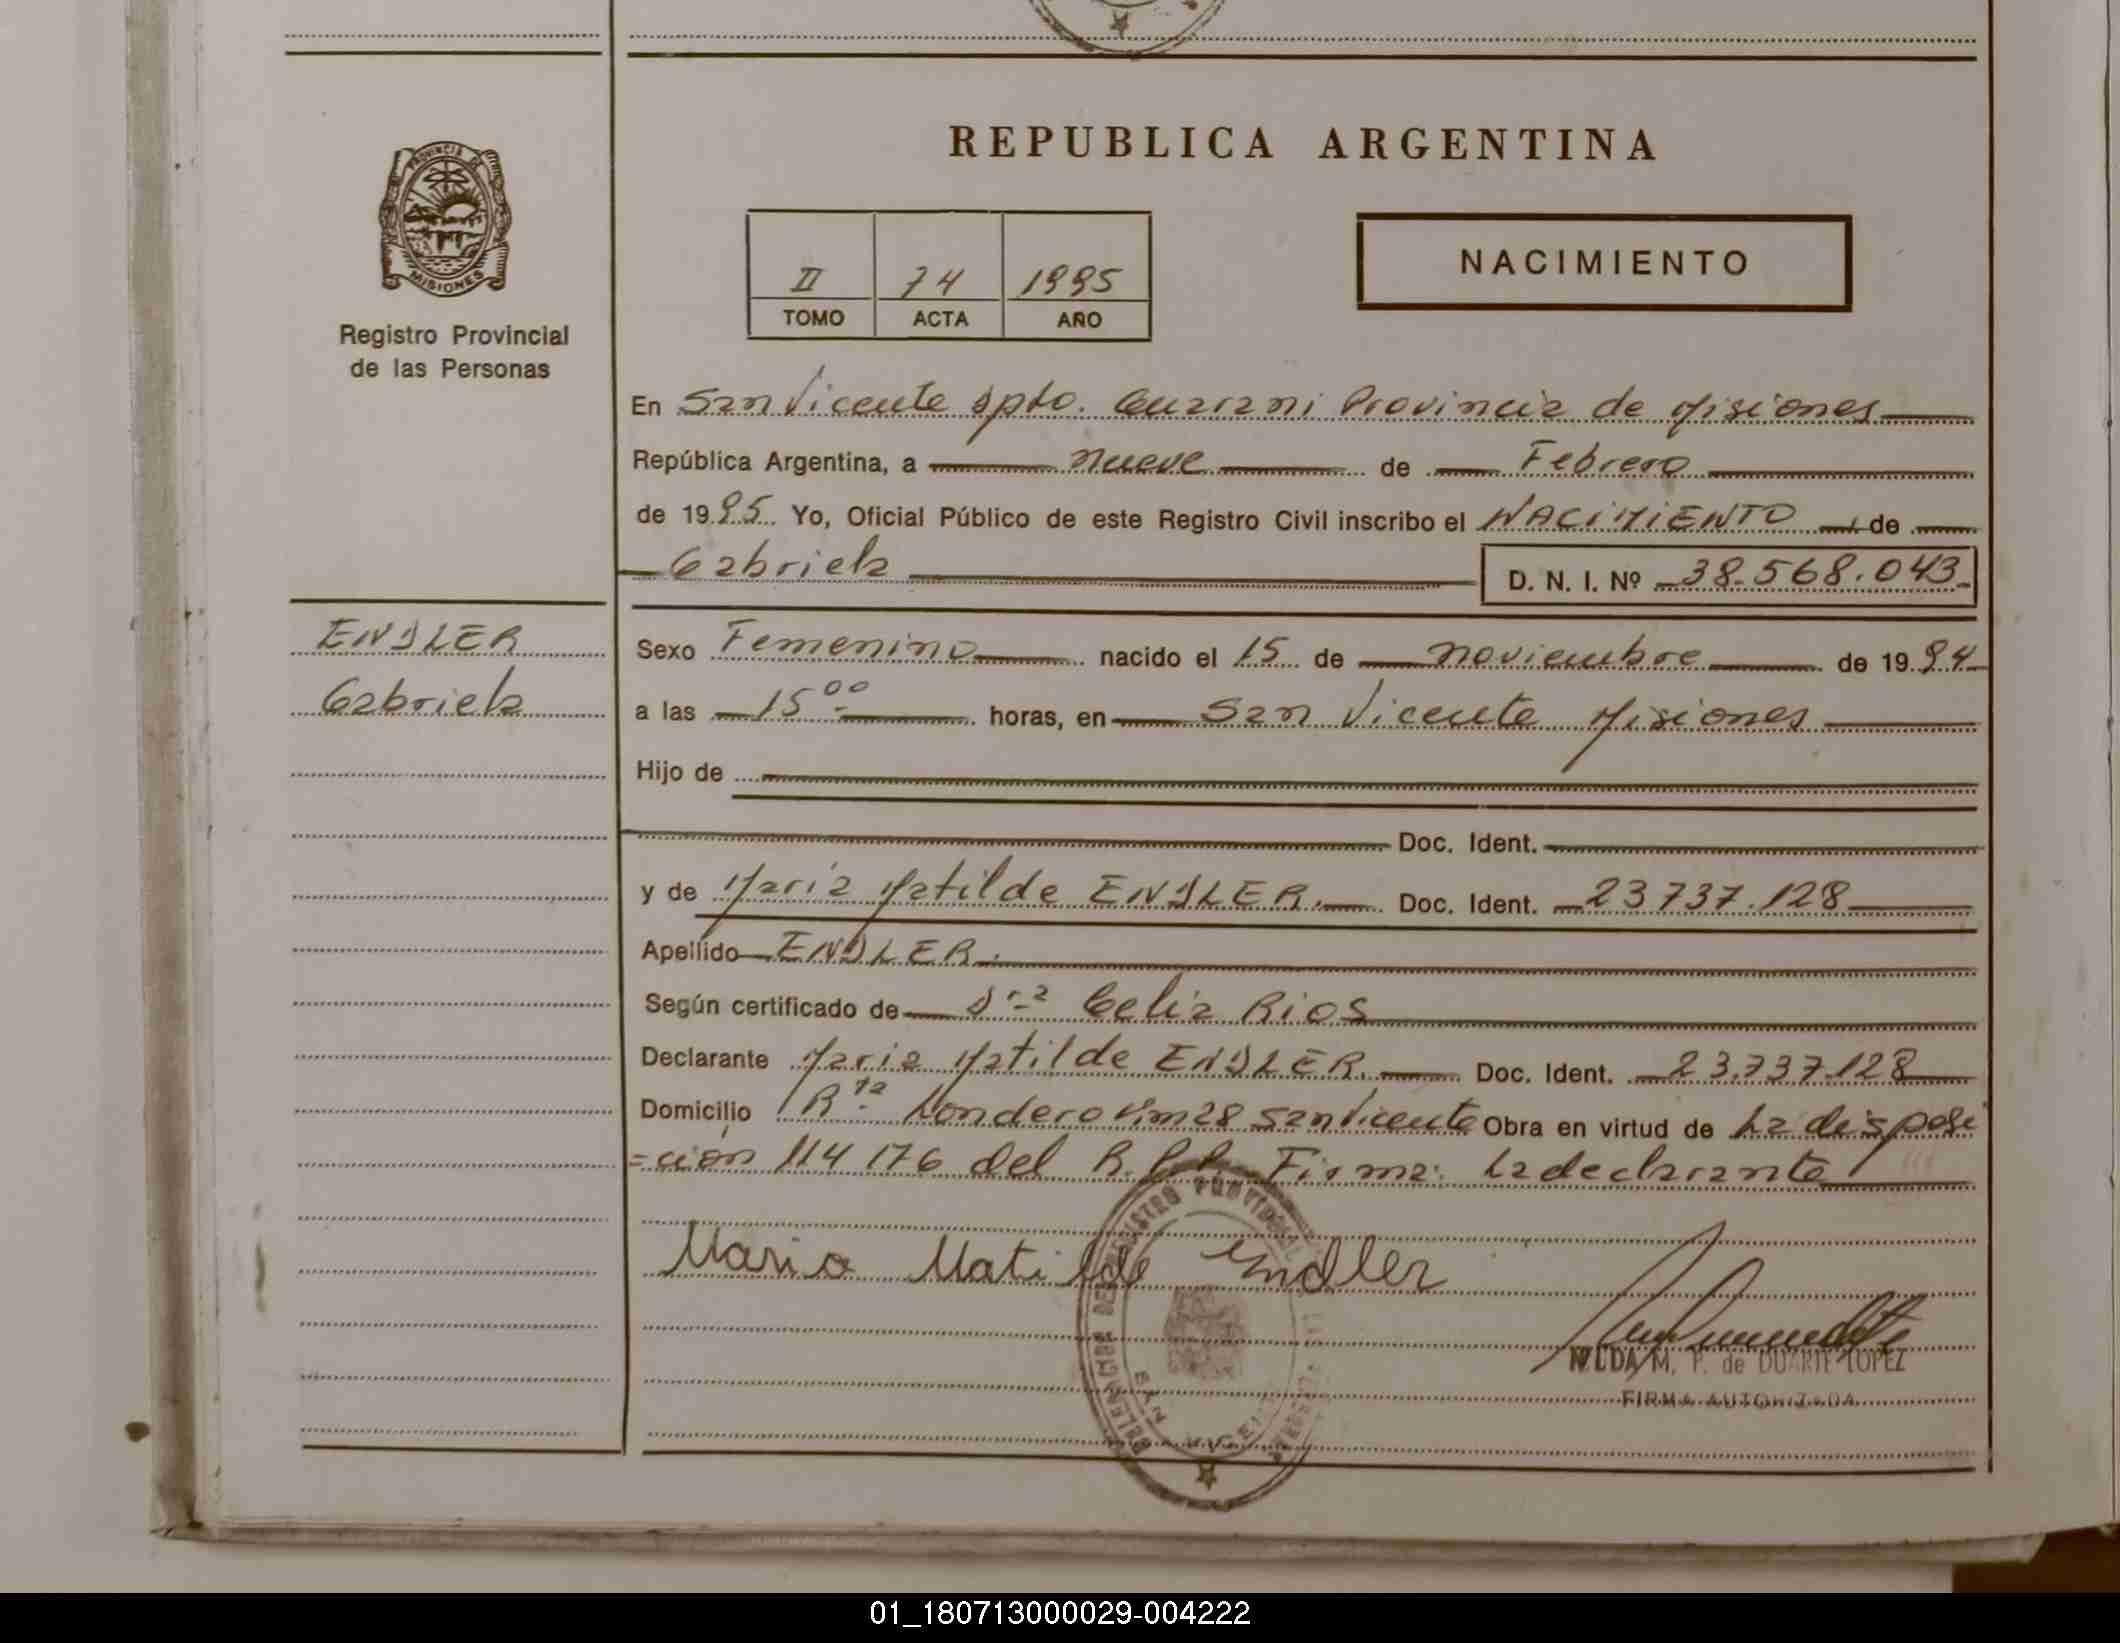 REPUBLICA ARGENTINA
PROVINCIA DE
MISIONES
Registro Provincial
de las Personas
II 74 1995
TOMO ACTA AÑO
NACIMIENTO
En San Vicente Dpto. Guarani Provincia de Misiones
República Argentina, a nueve de Febrero
de 1995 Yo, Oficial Público de este Registro Civil inscribo el NACIMIENTO de
Gabriela D. N. I. Nº 38.568.043
ENDLER
Gabriela
Sexo Femenino nacido el 15 de noviembre de 1994
a las 15 00 horas, en San Vicente Misiones
Hijo de
Doc. Ident.
y de Maria Matilde ENDLER. Doc. Ident. 23737.128
Apellido ENDLER.
Según certificado de Dra Celia Rios
Declarante Maria Matilde ENDLER. Doc. Ident. 23.737.128
Domicilio Rta Londero Km 28 San Vicente Obra en virtud de La disposi
=cion 114 176 del R.P.P. Firma: La declarante
Maria Matilde Endler
REGISTRO PROVINCIAL
SAN VICENTE
NILDA M. P. de DUARTE LOPEZ
FIRMA AUTORIZADA
01_180713000029-004222